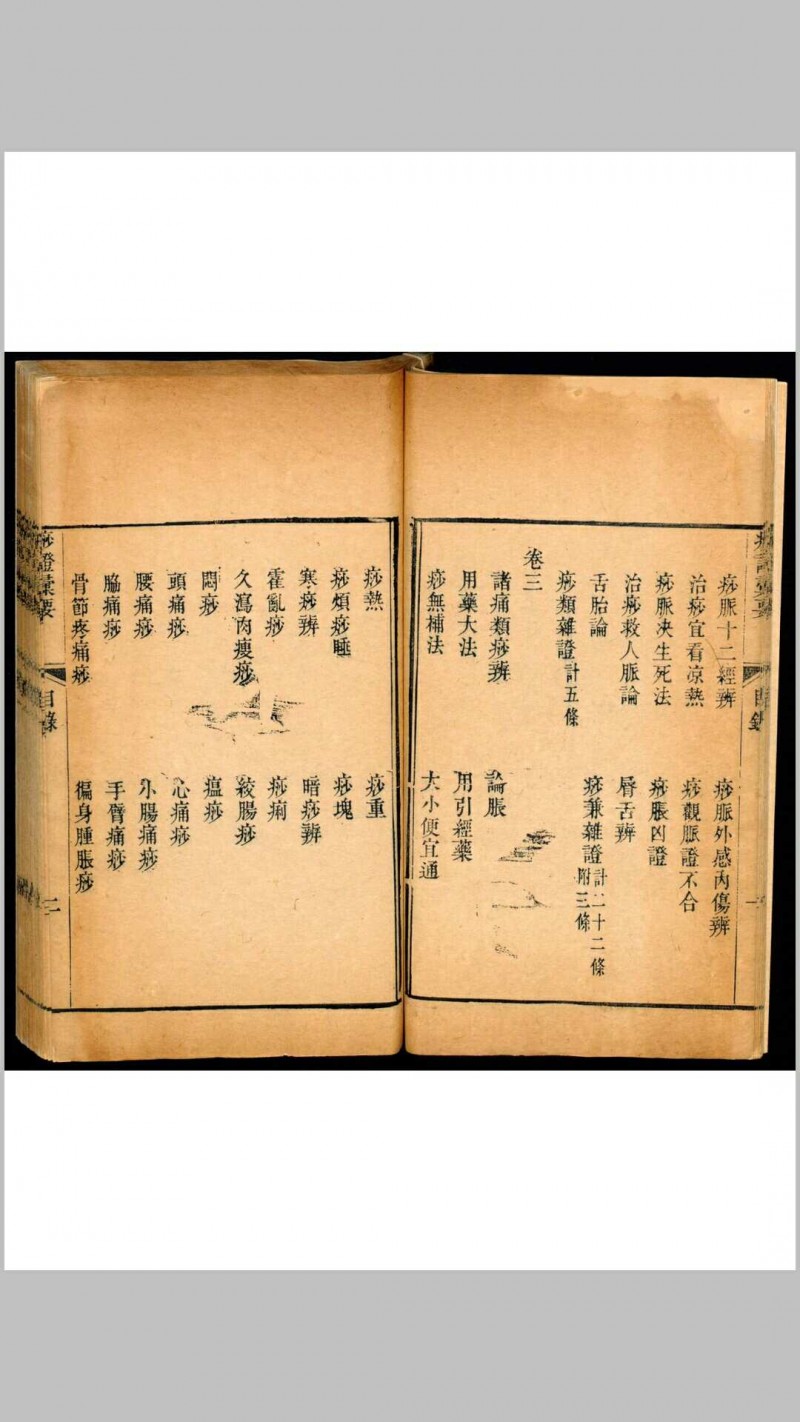 痧脈十二經辨　痧脈外感內傷辨
治痧宜看凉熱　痧觀脈證不合
痧脈决生死法　痧脹凶證
治痧救人脈論　唇舌辨
舌胎論　痧兼雜證計二十二條附三條
痧類雜證計五條
卷三
諸痛類痧辨　論脹
用藥大法　用引經藥
痧無補法　大小便宜通
痧熱　痧重
痧煩痧睡　痧塊
寒痧辨　暗痧辨
霍亂痧　痧痢
久瀉肉瘦痧　絞腸痧
悶痧　瘟痧
頭痛痧　心痛痧
腰痛痧　小腸痛痧
脇痛痧　手臂痛痧
骨節疼痛痧　徧身腫脹痧
痧證彙要　目錄　二